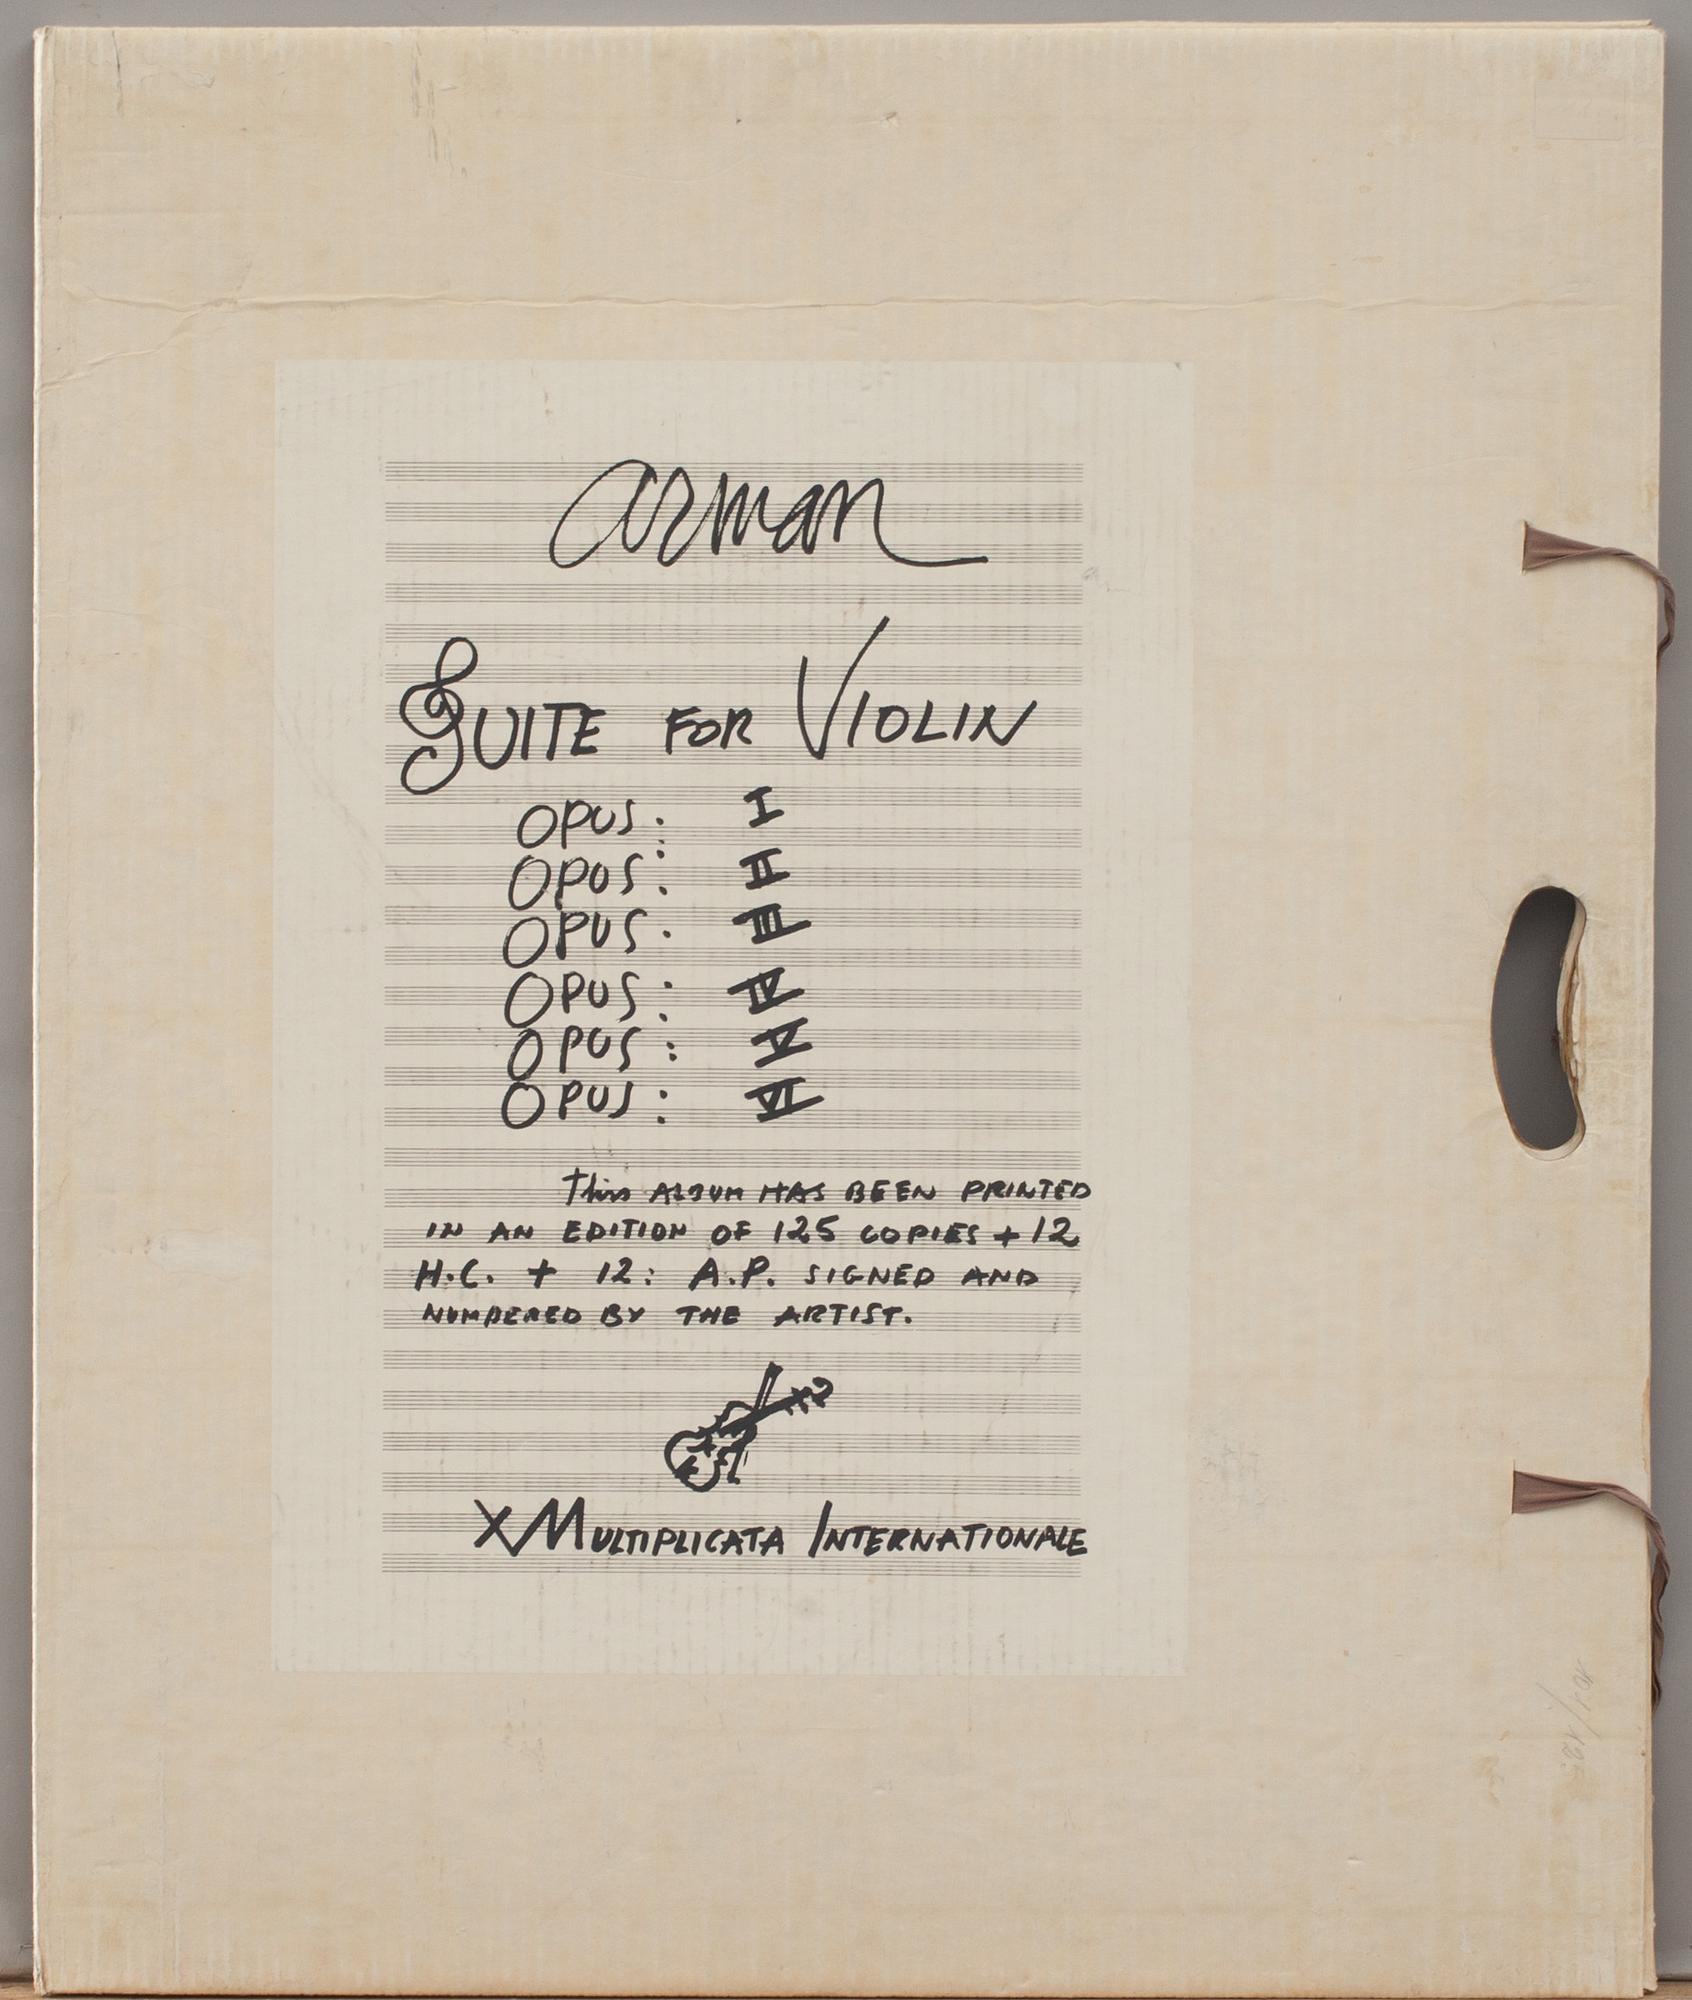 arman
SUITE FOR VIOLIN
OPUS: I
OPUS: II
OPUS: III
OPUS: IV
OPUS: V
OPUS: VI
This ALBUM HAS BEEN PRINTED
IN AN EDITION OF 125 COPIES + 12
H.C. + 12: A.P. SIGNED AND
NUMBERED BY THE ARTIST.
XMULTIPLICATA INTERNATIONALE